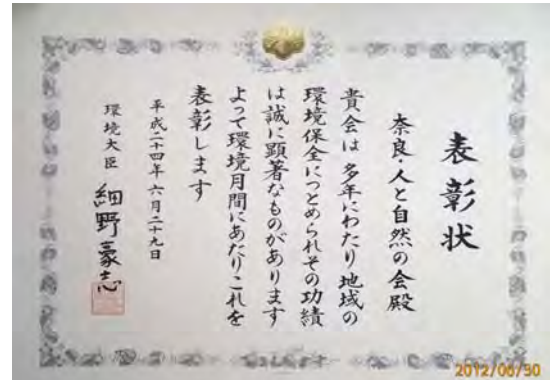 表彰状
奈良・人と自然の会殿
貴会は多年にわたり地域の
環境保全につとめられその功績
は誠に顕著なものがあります
よって環境月間にあたりこれを
表彰します
平成二十四年六月二十九日
環境大臣 細野豪志
2012/06/30